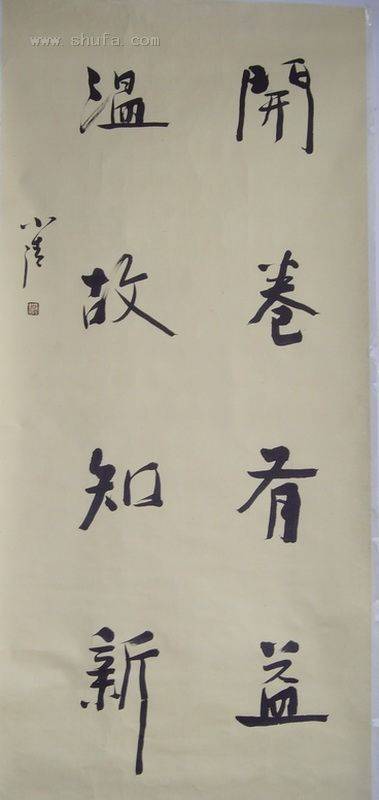 開卷有益
溫故知新
小清
www.shufa.com